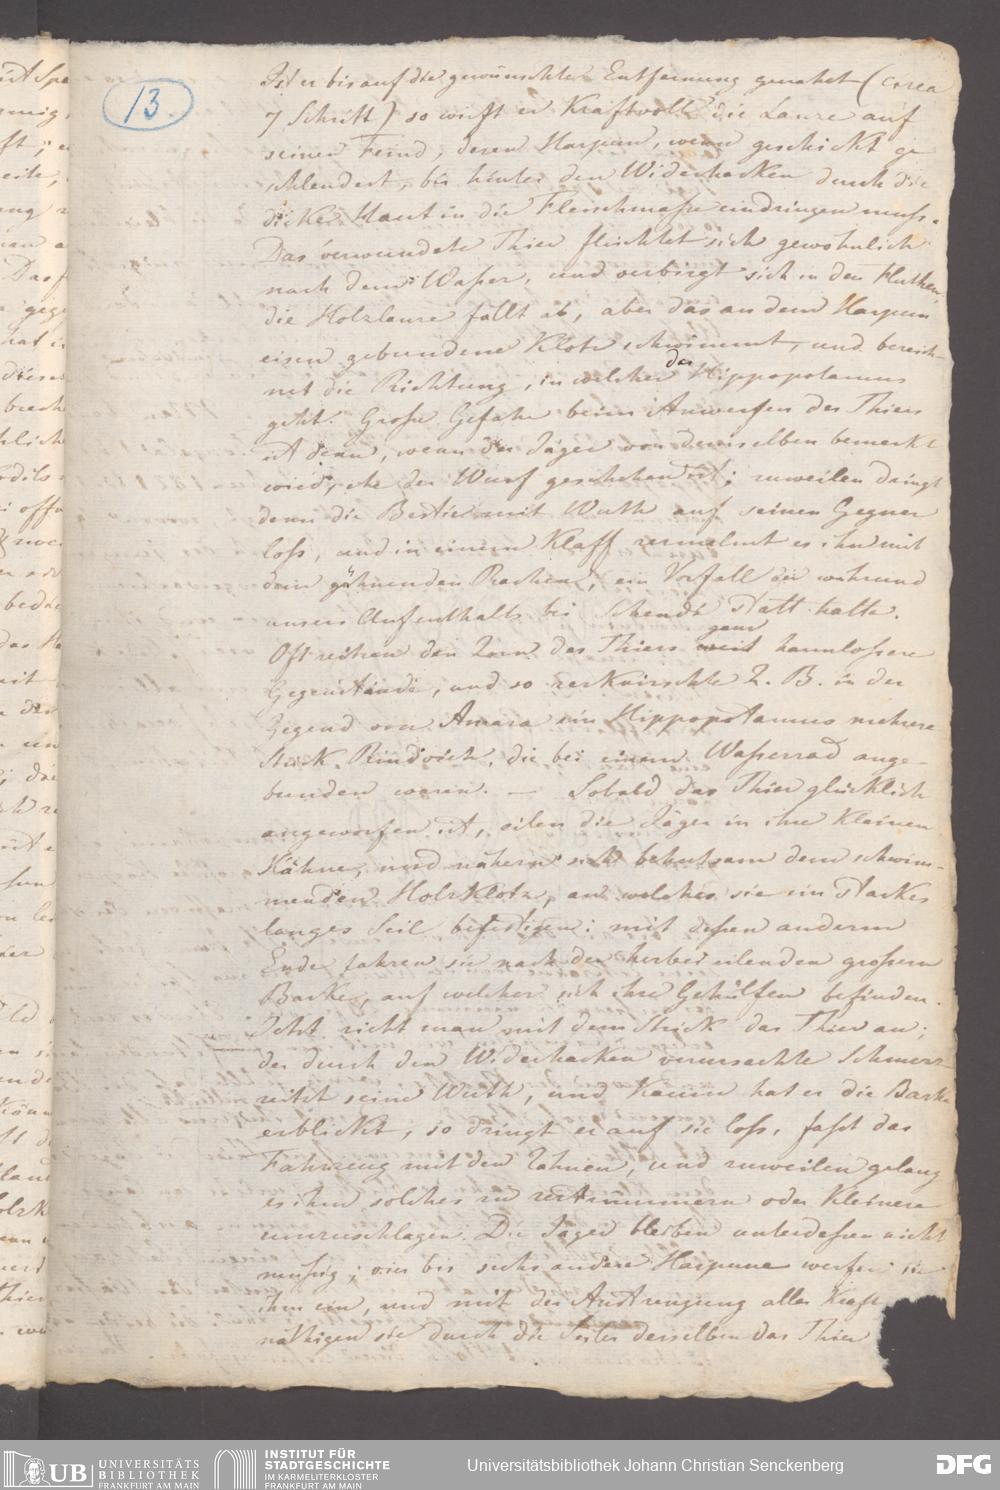 13.
Ist er bis auf die gewünschte Entfernung genahet (circa
7 Schritt) so wirft er Kraftvoll die Lanze auf
seinen Feind, deren Harpun, wenn geschickt ge
schleudert, bis hinter den Widerhacken durch die
dicke Haut in die Fleischmasse eindringen muss.
Das verwundete Thier flüchtet sich gewöhnlich
nach dem Wasser, und verbirgt sich in den Fluthen,
die Holzlanze fällt ab, aber das an dem Harpun
eisen gebundene Klotz schwimmt, und bezeich-
net die Richtung, in welcher der Hippopotamus
geht. Grosse Gefahr beim Anwerfen des Thiers
ist denn, wenn der Jäger von demselben bemerkt
wird, ehe der Wurf geschehen ist; zuweilen dringt
denn die Bestie mit Wuth auf seinen Gegner
loss, und in einem Klaff zermalmt es ihn mit
dem gähnenden Rachen, ein Vorfall der während
unsers Aufenthalts bei Schendi statt hatte.
Oft reitzen den Zorn des Thiers ganz harmlosere
Gegenstände, und so zerknirschte z. B. in der
Gegend von Amara ein Hippopotamus mehrere
Stück Rindvieh, die bei einem Wasserrad ange-
bunden waren. — Sobald das Thier glücklich
angeworfen ist, eilen die Jäger in ihre kleinen
Kähne, und nähern sich behutsam dem schwim-
menden Holzklotz, an welches sie ein starkes
langes Seil befestigen: mit dessen anderm
Ende fahren sie nach der herbei eilenden grossern
Barke, auf welcher sich ihre Gehülfen befinden.
Jetzt zieht man mit dem Strick das Thier an;
der durch den Widerhacken verursachte Schmerz
reitzt seine Wuth, und kaum hat er die Barke
erblickt, so dringt er auf sie loss, fasst das
Fahrzeug mit den Zähnen, und zuweilen gelang
es ihm solches zu zertrümmern oder kleinere
umzuschlagen. Die Jäger bleiben unterdessen nicht
mussig; vier bis sechs andere Harpune werfen sie
ihm ein, und mit der Anstrengung aller Kraft
nöthigen sie durch die Seiler derselben das Thier
UB UNIVERSITÄTS
BIBLIOTHEK
FRANKFURT AM MAIN
INSTITUT FÜR
STADTGESCHICHTE
IM KARMELITERKLOSTER
FRANKFURT AM MAIN
Universitätsbibliothek Johann Christian Senckenberg
DFG